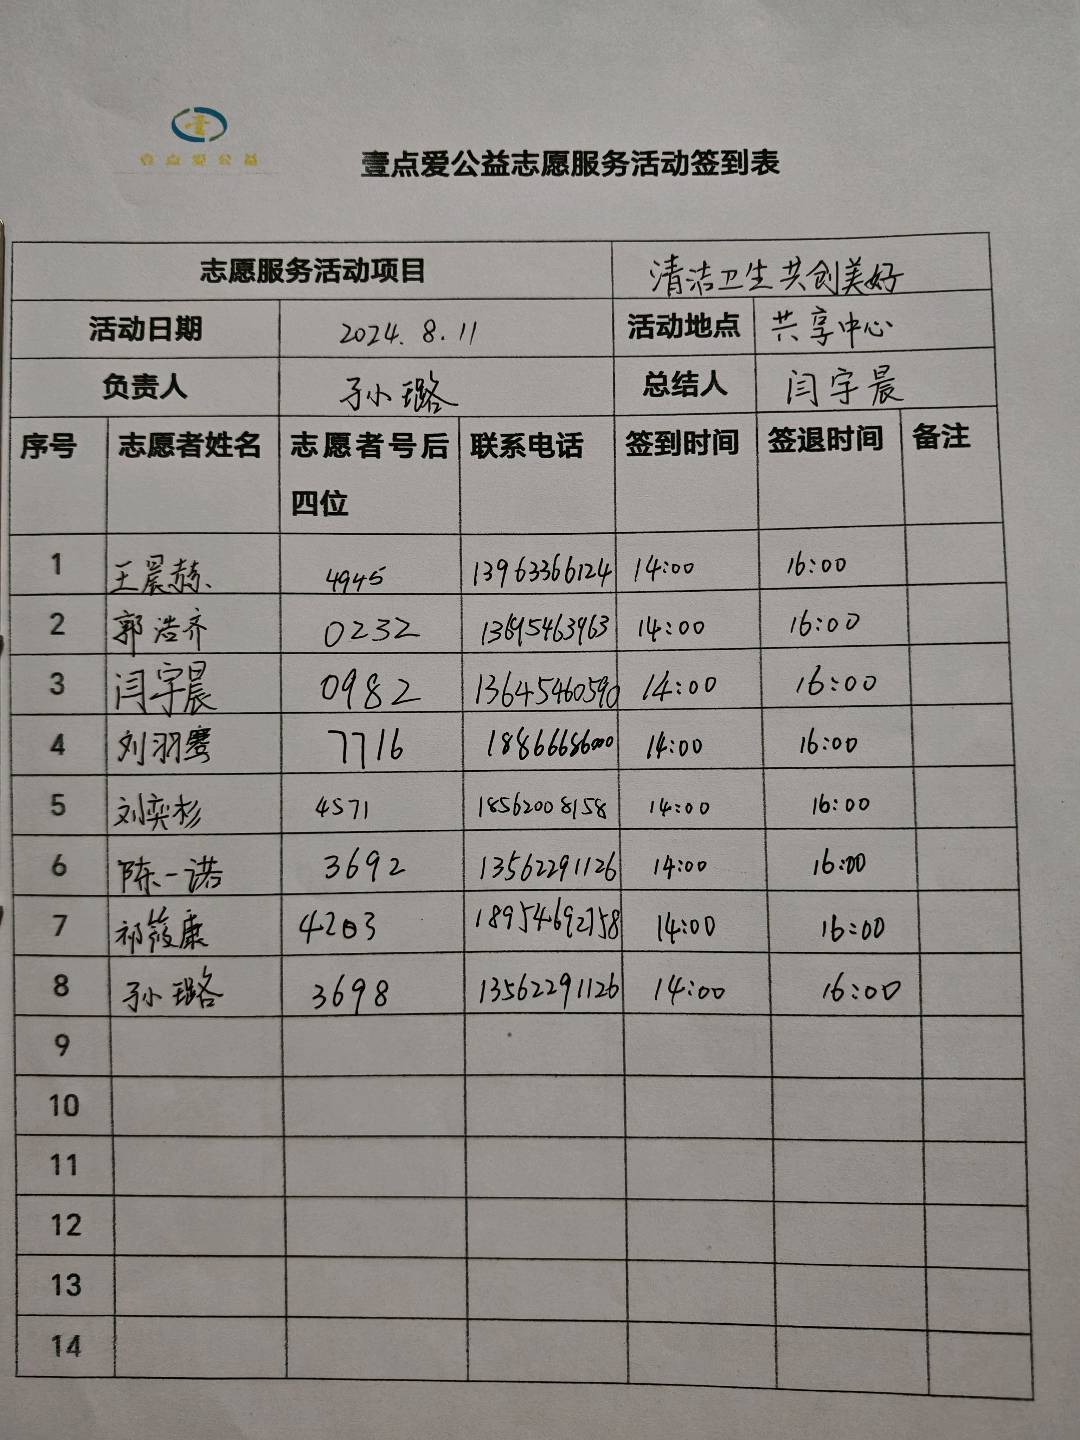 壹点爱公益
壹点爱公益志愿服务活动签到表
志愿服务活动项目 清洁卫生共创美好
活动日期 2024.8.11 活动地点 共享中心
负责人 孙小璐 总结人 闫宇晨
序号 志愿者姓名 志愿者号后四位 联系电话 签到时间 签退时间 备注
1 王晨赫 4945 13963366124 14:00 16:00
2 郭浩齐 0232 13695463963 14:00 16:00
3 闫宇晨 0982 13645460590 14:00 16:00
4 刘羽骞 7716 18866686000 14:00 16:00
5 刘奕杉 4571 18562008158 14:00 16:00
6 陈一诺 3692 13562291126 14:00 16:00
7 祁筱康 4203 18954692758 14:00 16:00
8 孙小璐 3698 13562291126 14:00 16:00
9
10
11
12
13
14